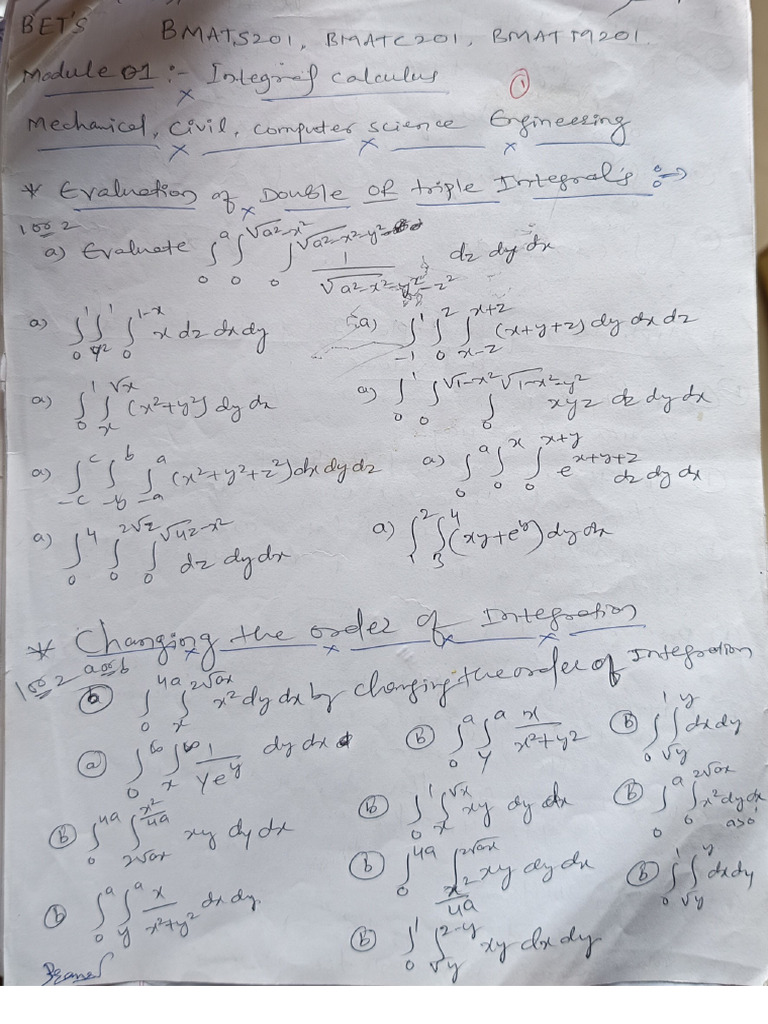 BET'S BMATS201, BMATC201, BMATM201.
Module 01 :- Integral calculus ①
Mechanical, Civil, computer science Engineering
* Evaluation of Double or triple Integral's :→
1 or 2
a) Evaluate ∫₀^a ∫₀^√(a²-x²) ∫₀^√(a²-x²-y²) 1/√(a²-x²-y²-z²) dz dy dx
a) ∫₀^1 ∫_{y²}^1 ∫₀^{1-x} x dz dx dy a) ∫_{-1}^1 ∫₀^z ∫_{x-z}^{x+z} (x+y+z) dy dx dz
a) ∫₀^1 ∫_x^√x (x²+y²) dy dx a) ∫₀^1 ∫₀^√(1-x²) ∫₀^√(1-x²-y²) xyz dz dy dx
a) ∫_{-c}^c ∫_{-b}^b ∫_{-a}^a (x²+y²+z²) dx dy dz a) ∫₀^a ∫₀^x ∫₀^{x+y} e^{x+y+z} dz dy dx
a) ∫₀^4 ∫₀^{2√z} ∫₀^√(4z-x²) dz dy dx a) ∫₁^2 ∫₃^4 (xy+e^y) dy dx
* Changing the order of Integration
1 or 2 a or b
ⓐ ∫₀^{4a} ∫_x^{2√ax} x² dy dx by changing the order of Integration
ⓐ ∫₀^∞ ∫_x^∞ 1/(y e^y) dy dx Ⓑ ∫₀^a ∫_y^a x/(x²+y²) Ⓑ ∫₀^1 ∫_{√y}^y dx dy
ⓑ ∫₀^{4a} ∫_{2√ax}^{x²/4a} xy dy dx Ⓑ ∫₀^1 ∫_x^√x xy dy dx Ⓑ ∫₀^a ∫₀^{2√ax} x² dy dx a>0
ⓑ ∫₀^a ∫_y^a x/(x²+y²) dx dy ⓑ ∫₀^{4a} ∫_{x²/4a}^{2√ax} xy dy dx ⓑ ∫₀^1 ∫_{√y}^y dx dy
Ⓑ ∫₀^1 ∫_{√y}^{2-y} xy dx dy